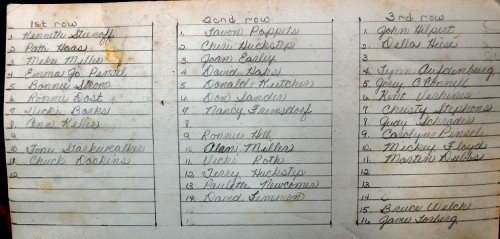 1st row
1. Kenneth
2. Patti Haas
3. Mike Miller
4. Emma Jo Pensel
5. Bonnie Strom
6. Ronnie Dost
7. Vicki Barks
8. Ann Keller
9.
10. Toni Starkweather
11. Chuck Dockins
12
2nd row
1. Favon Poppets
2. Cheri Huckstep
3. Joan Easley
4. David Hahs
5. Donald Kutcher
6. Don Sander
7. Nancy Fernsdorf
8
9. Ronnie Hill
10. Alan Miller
11. Vicki Roth
12 Terry Huckstep
13 Paulette Newcomer
14. David Lemmon
3rd row
1. John Hilpert
2. Della Hiese
3.
4. Lynn Aufdenberg
5. Jerry O'Connell
6. Kent
7. Christy Stephens
8. Judy Schrader
9. Carolyne Pensel
10. Mickey Floyd
11. Martin Dubbs
12.
13
14
15. Bruce Welch
16. Jane Forberg